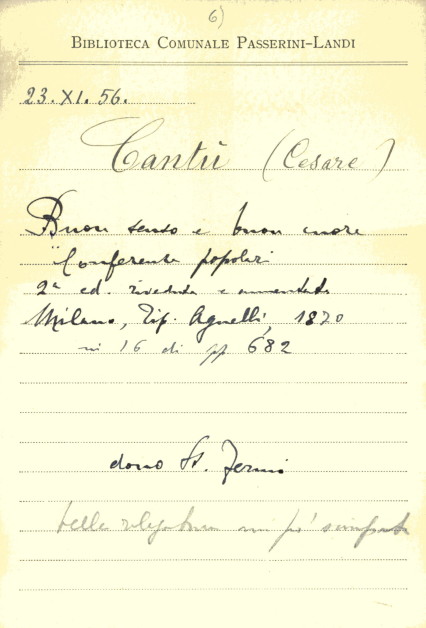 6)
BIBLIOTECA COMUNALE PASSERINI-LANDI
23.XI.56.
Cantù (Cesare)
Buon senso e buon cuore
"Conferenze popolari
2ª ed. riveduta e aumentata
Milano, Tip. Agnelli, 1870
in 16 di pp 682
dono St. Fermi
bella rilegatura un po'